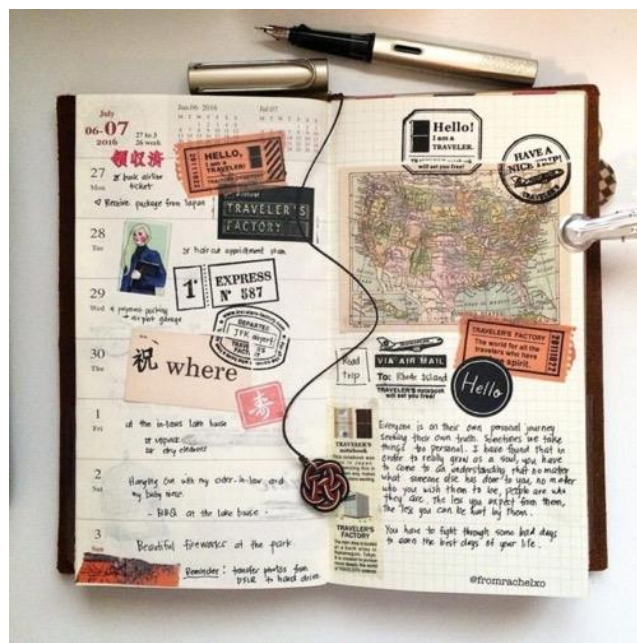 July
06-07
2016
27 to 3
26 week
Jun.06 2016
Jul.07
領収済
HELLO,
I am a
TRAVELER!
20111022
TRAVELER'S
FACTORY
27
Mon
book airline
ticket
Receive package from Japan
28
Tue
haircut appointment 4pm
1
EXPRESS
Nº 587
29
Wed
prepares packing
airport garage
DEPARTED
JFK airport
30
Thu
祝 where
寿
1
Fri
at the in-laws lake house
unpack
dry cleaners
2
Sat
Hanging out with my sister-in-law, and
my baby niece.
- BBQ at the lake house -
3
Sun
Beautiful fireworks at the park.
Reminder: transfer photos from
DSLR to hard drive.
Hello!
I am a
TRAVELER.
will set you free!
HAVE A
NICE TRIP!
TRAVELER'S
GULF OF MEXICO
TRAVELER'S FACTORY
The world for all the
travelers who have
spirit.
20111022
Road
trip
VIA AIR MAIL
To: Rhode Island
TRAVELER'S notebook
will set you free!
Hello
TRAVELER'S
notebook
TRAVELER'S
FACTORY
Everyone is on their own personal journey
seeking their own truth. Sometimes we take
things too personal. I have found that in
order to really grow as a soul, you have
to come to an understanding that no matter
what someone else has done to you, no matter
who you wish them to be, people are who
they are. The less you expect from them,
the less you can be hurt by them.
You have to fight through some bad days
to earn the best days of your life.
@fromrachelxo